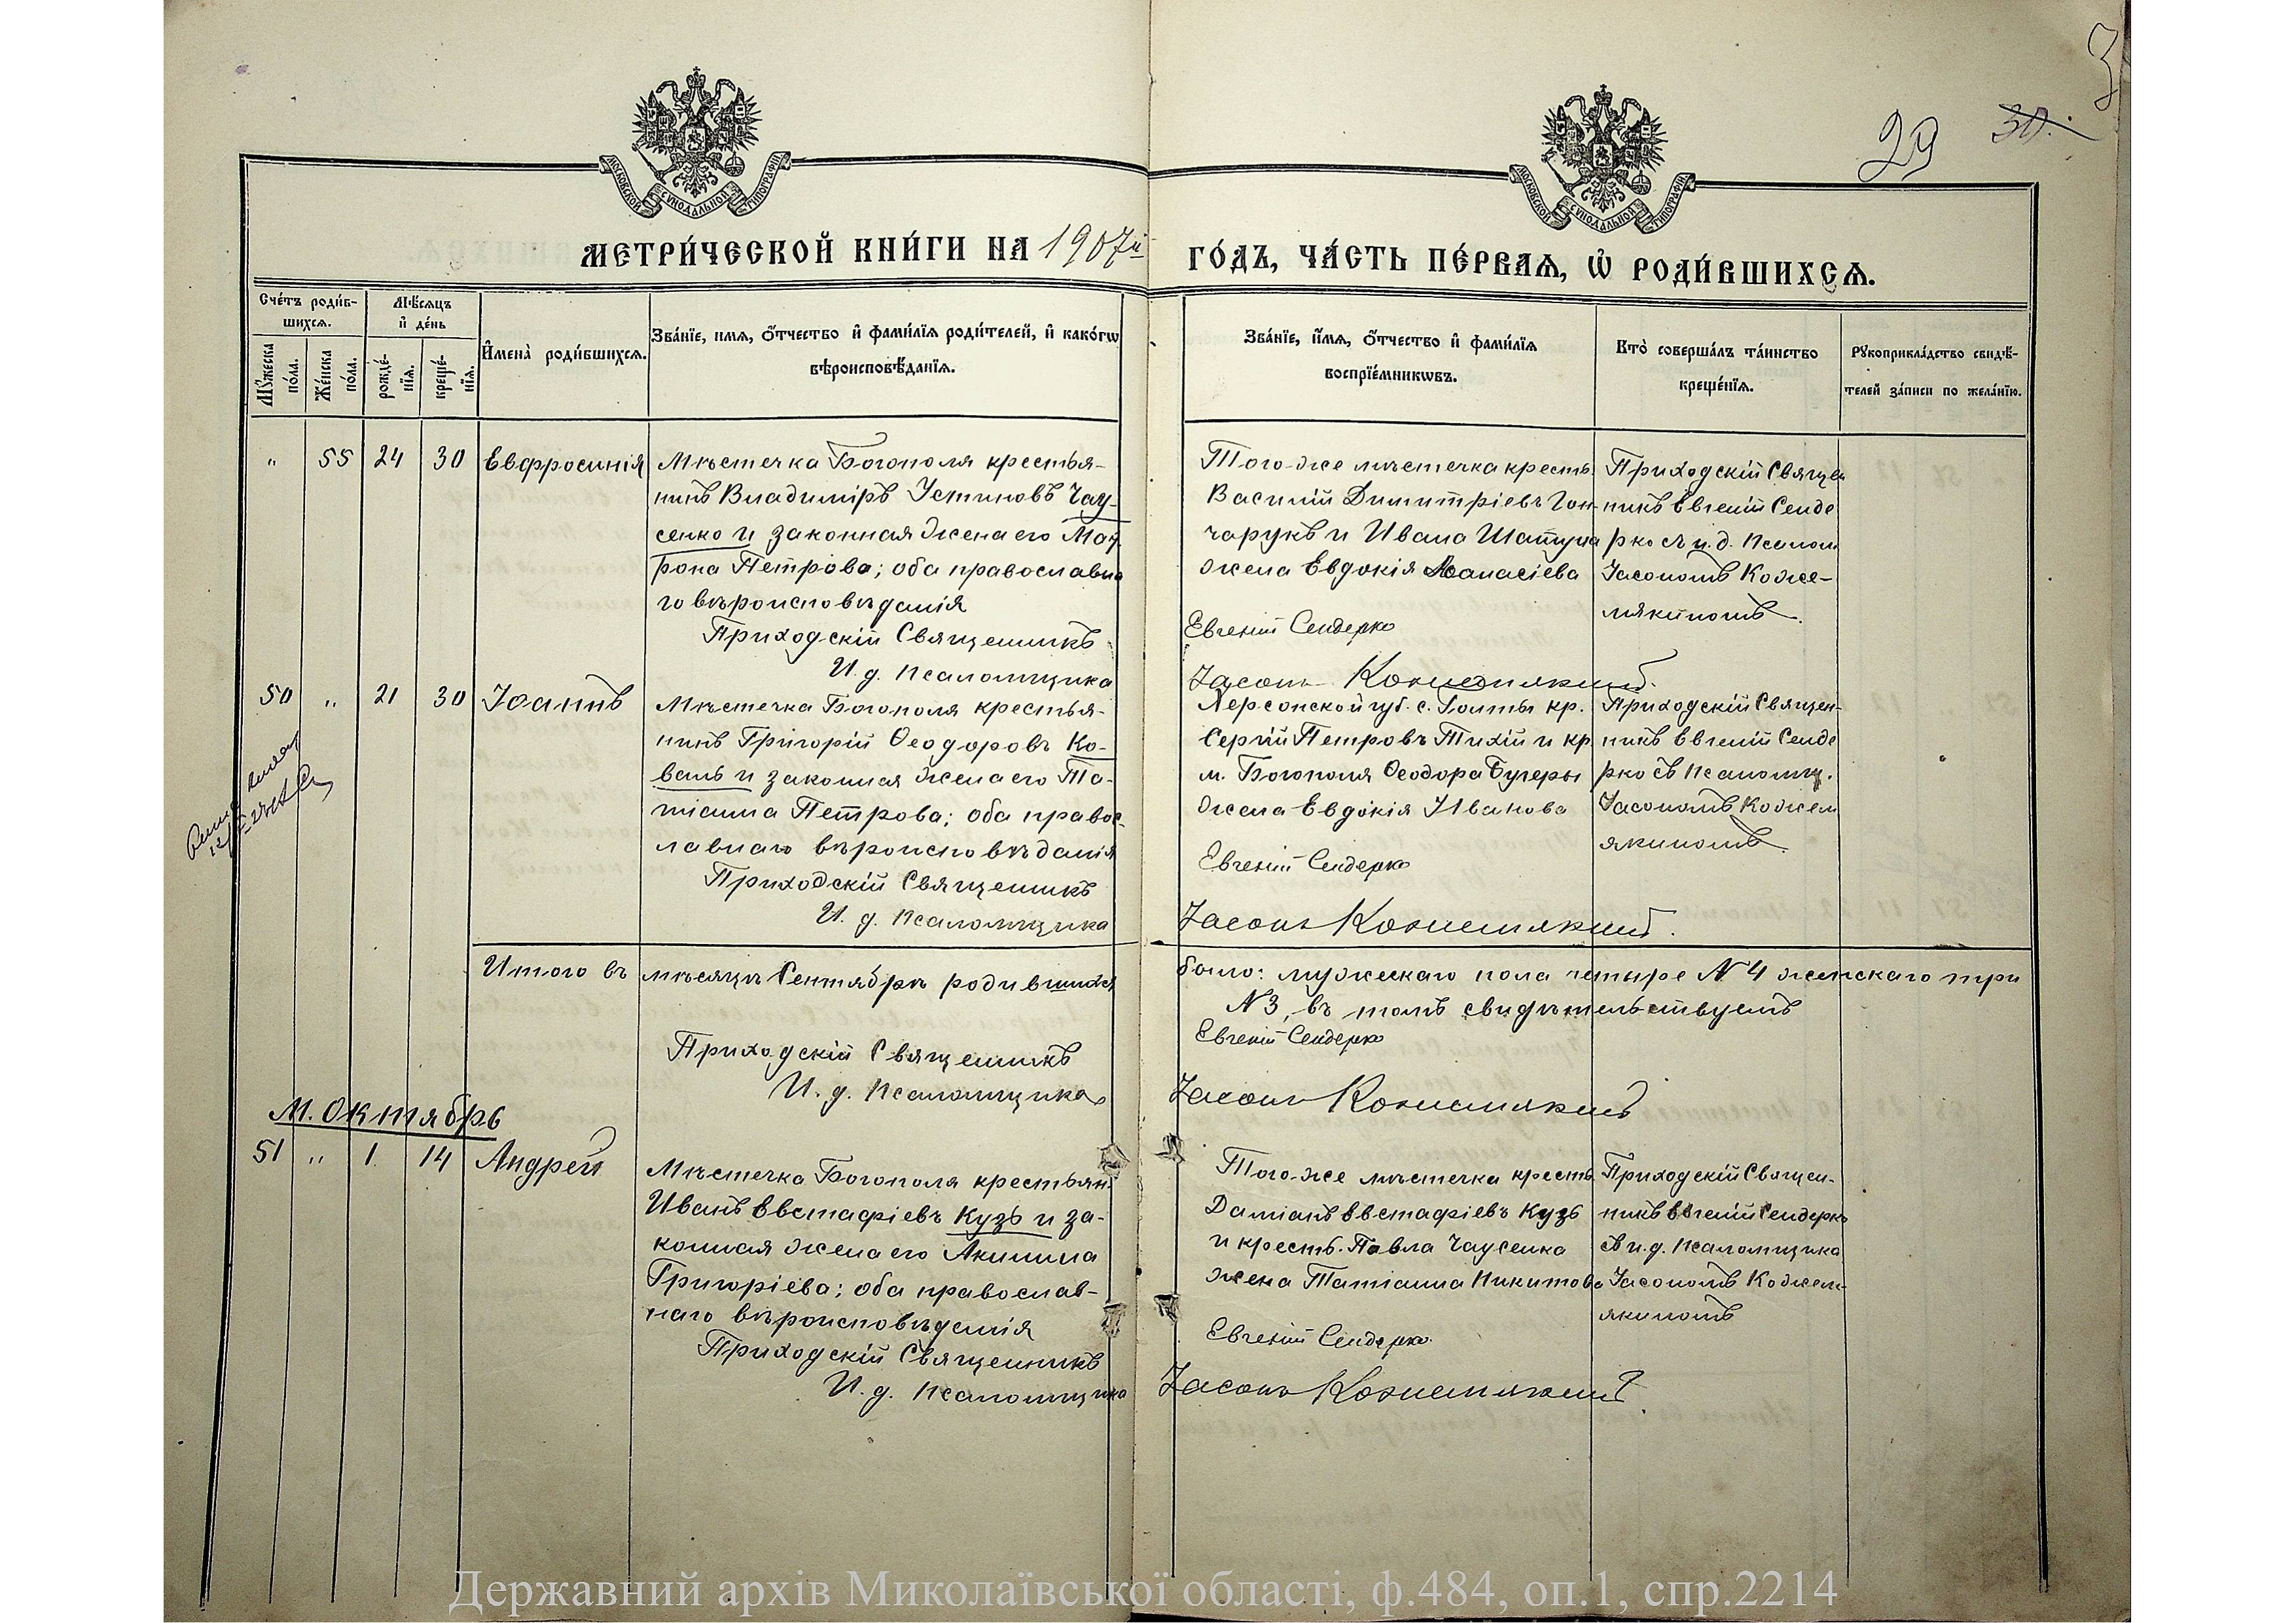 3
29 30.
МОСКОВСКОЙ СѴНОДАЛЬНОЙ ТИПОГРАФІИ
МОСКОВСКОЙ СѴНОДАЛЬНОЙ ТИПОГРАФІИ
МЕТРИ́ЧЕСКОЙ КНИ́ГИ НА 1907й ГО́ДЪ, ЧА́СТЬ ПЕ́РВАѦ, Ѽ РОДИ́ВШИХСѦ.
Сче́тъ роди́в-
шихсѧ.
Мѣ́сѧцъ
и҆ де́нь
Мꙋ́жеска
по́ла.
Же́нска
по́ла.
рожде́-
нїѧ.
креще́-
нїѧ.
И҆мена̀ роди́вшихсѧ.
Зва́нїе, имѧ, ѻ҆́тчество и҆ фами́лїѧ роди́телей, и҆ како́гѡ
вѣроисповѣ́данїѧ.
Зва́нїе, и҆́мѧ, ѻ҆́тчество и҆ фами́лїѧ
воспрїе́мникѡвъ.
Кто̀ соверша́лъ та́инство
креще́нїѧ.
Рꙋкоприкла́дство свидѣ́-
телей за́писи по жела́нїю.
" 55 24 30 Евфросинія
Мѣстечка Богополя крестья-
нинъ Владиміръ Устиновъ Чау-
сенко и законная жена его Мат
рона Петрова; оба православна
го вѣроисповѣданія
Приходскій Священникъ
И. д. Псаломщика
Того-же мѣстечка кресть.
Василій Димитріевъ Гон-
чарукъ и Ивана Шапуна
жена Евдокія Аѳанасіева
Евгеній Сендерко
Іасонъ Кожемякинъ.
Приходскій Священ
никъ Евгеній Сенде
рко съ и. д. Псалом
Іасономъ Коже-
мякиномъ.
50 " 21 30 Іоаннъ
Мѣстечка Богополя крестья-
нинъ Григорій Ѳеодоровъ Ко-
валь и законная жена его Та-
тіанна Петрова; оба правос-
лавнаго вѣроисповѣданія
Приходскій Священникъ
И. д. Псаломщика
Херсонской губ. с. Голты кр.
Сергій Петровъ Тихій и кр.
м. Богополя Ѳеодора Бугеры
жена Евдокія Иванова
Евгеній Сендерко
Іасонъ Кожемякинъ.
Приходскій Священ-
никъ Евгеній Сенде
рко съ Псаломщ.
Іасономъ Кожем
якиномъ.
Итого въ мѣсяцѣ Сентябрѣ родившихся было: мужескаго пола четыре N 4 женскаго три
N 3, въ томъ свидѣтельствуемъ
Приходскій Священникъ Евгеній Сендерко
И. д. Псаломщика Іасонъ Кожемякинъ
М. Октябрь
51 " 1 14 Андрей
Мѣстечка Богополя крестьян.
Иванъ Евстафіевъ Кузь и за-
конная жена его Акилина
Григоріева; оба православ-
наго вѣроисповѣданія
Приходскій Священникъ
И. д. Псаломщика
Того-же мѣстечка кресть
Даміанъ Евстафіевъ Кузь
и кресть. Павла Чаусенка
жена Татіанна Никитова
Евгеній Сендерко
Іасонъ Кожемякинъ
Приходскій Священ-
никъ Евгеній Сендерко
съ и. д. Псаломщика
Іасономъ Кожем-
якиномъ
Державний архів Миколаївської області, ф.484, оп.1, спр.2214